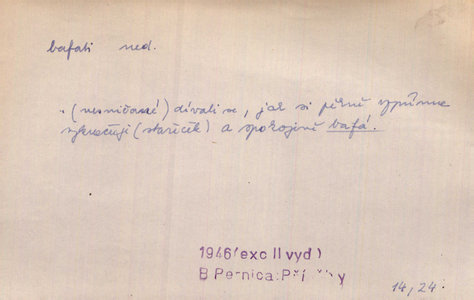 bafati ned.
(nesničavé) dívali se, jak si pěkně vzpřímeně
vykračuji (stařeček) a spokojeně bafá.
1946 (exc II vyd)
B Pernica:Pří hy
14, 24.